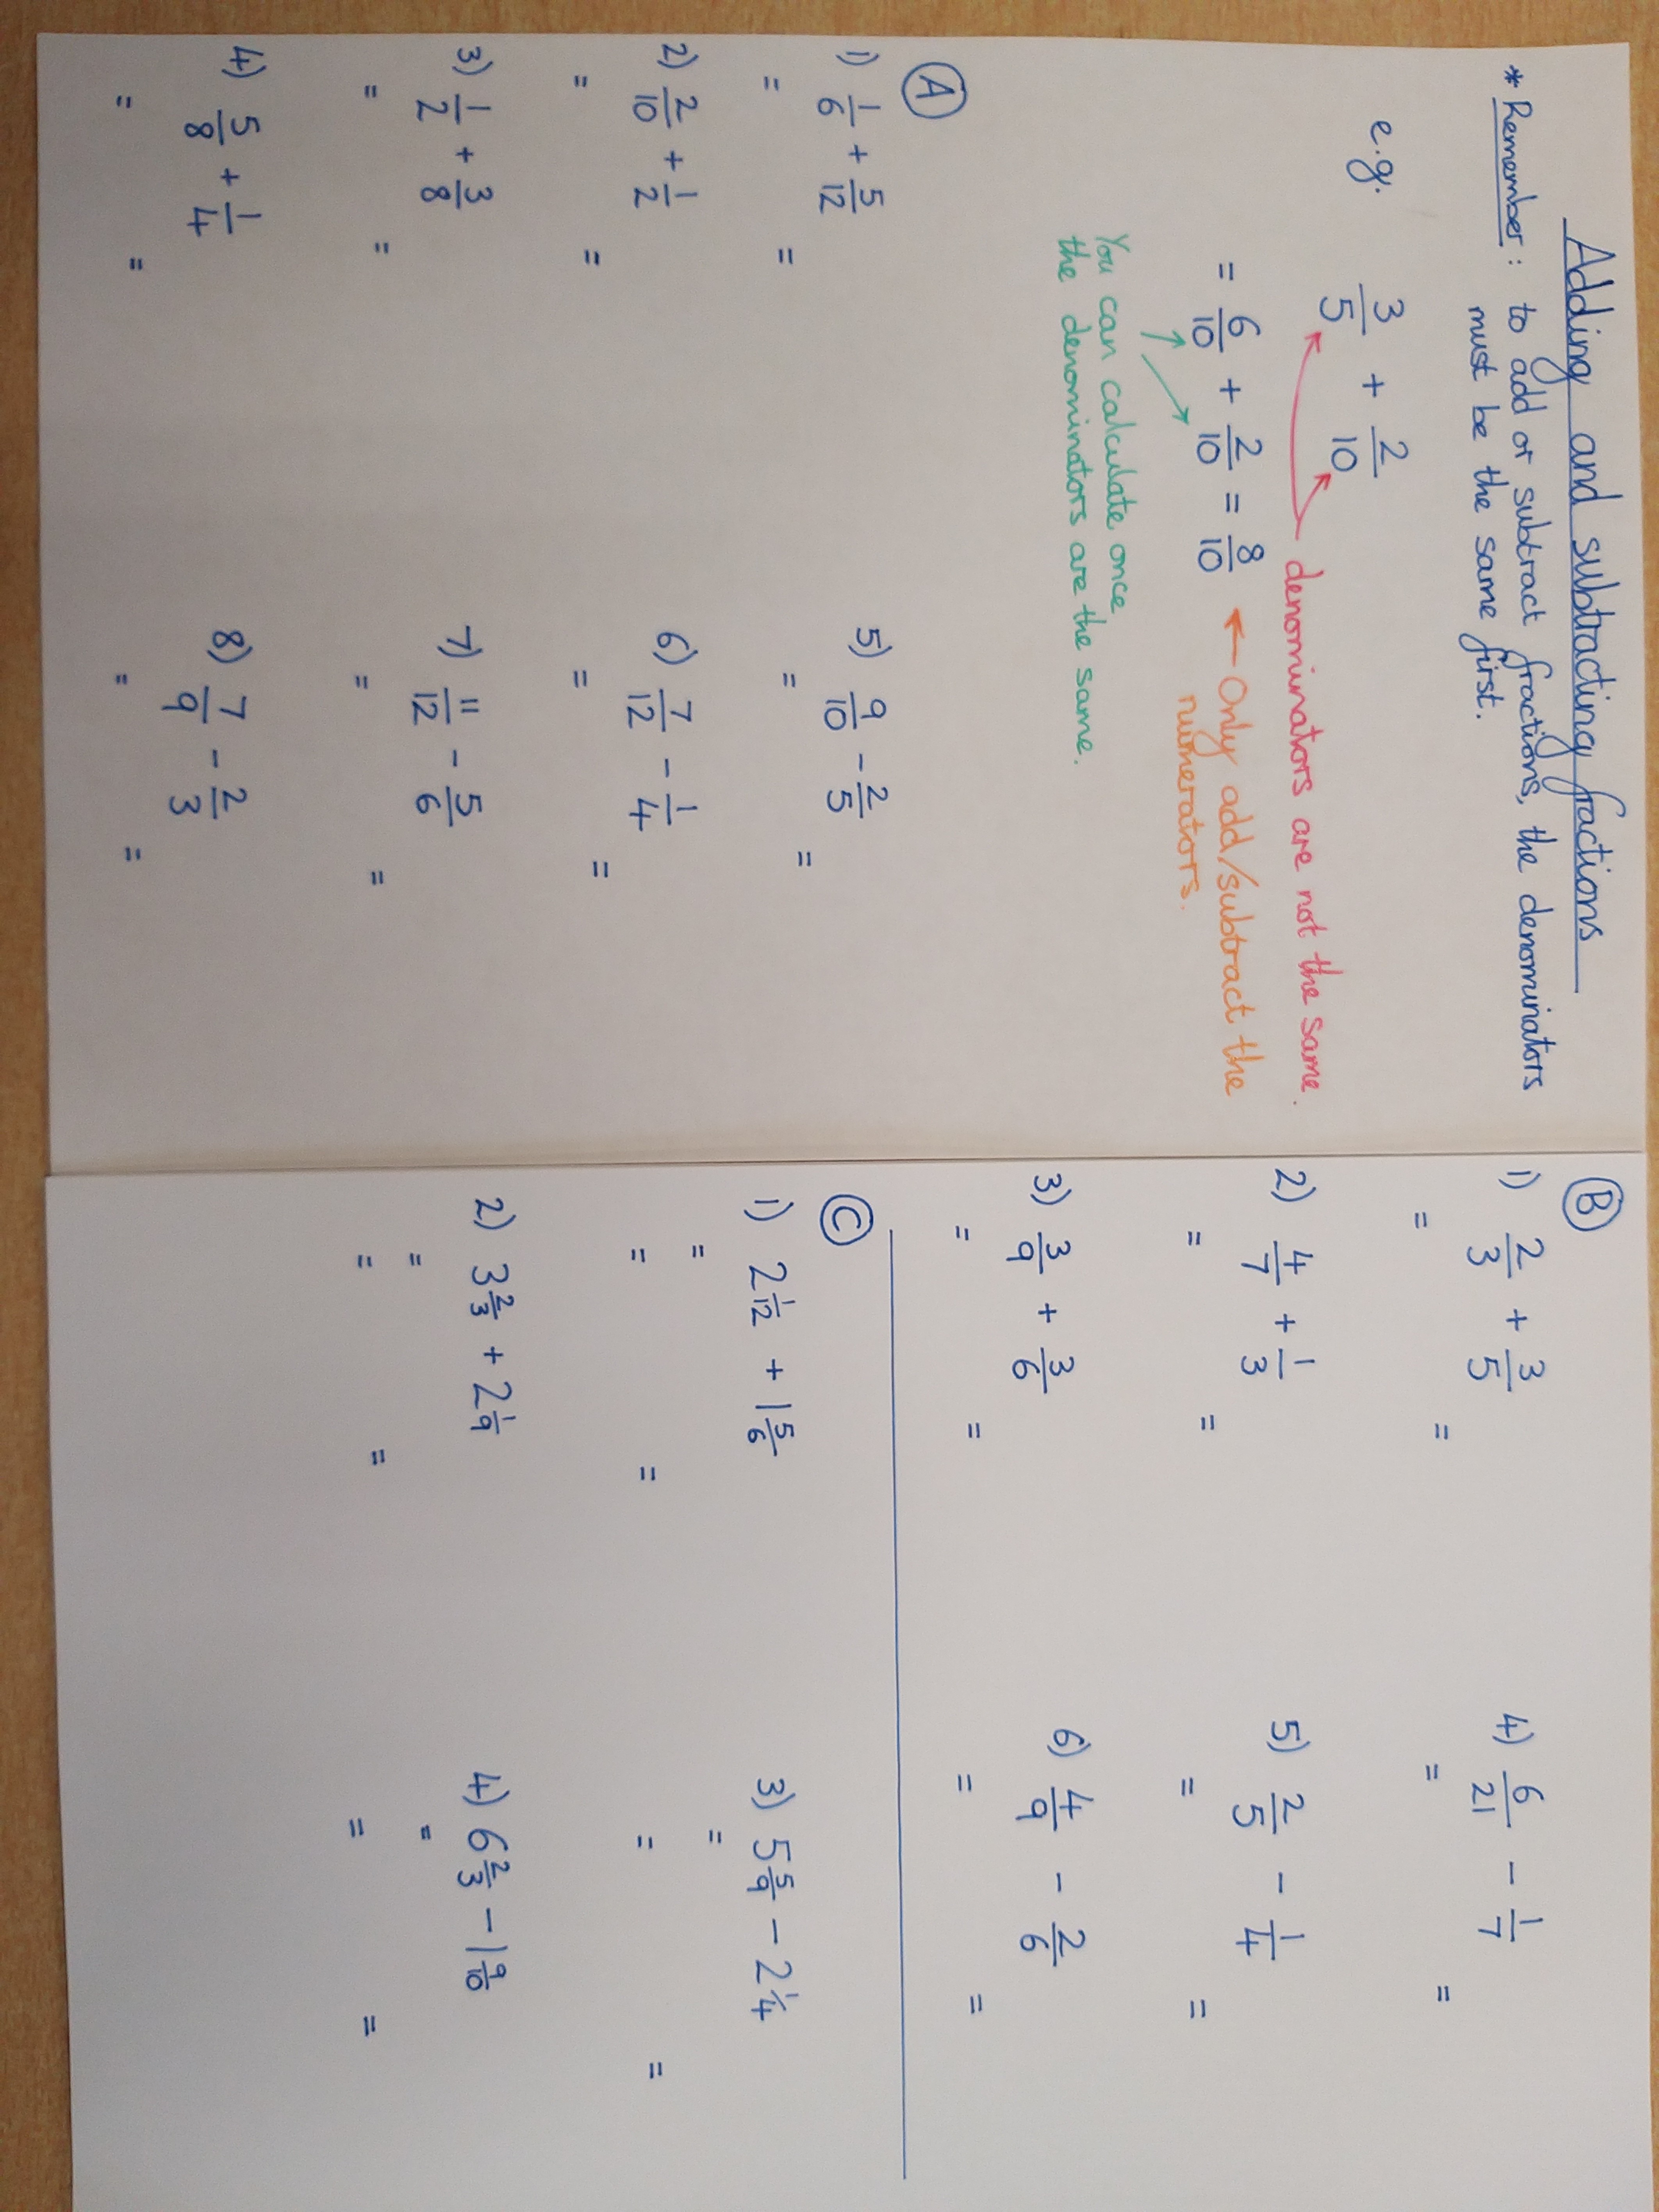 Adding and subtracting fractions
* Remember: to add or subtract fractions, the denominators
must be the same first.
e.g. 3/5 + 2/10
denominators are not the same.
= 6/10 + 2/10 = 8/10
← Only add/subtract the
numerators.
You can calculate once
the denominators are the same.
A
1) 1/6 + 5/12
= =
2) 2/10 + 1/2
= =
3) 1/2 + 3/8
= =
4) 5/8 + 1/4
= =
5) 9/10 - 2/5
= =
6) 7/12 - 1/4
= =
7) 11/12 - 5/6
= =
8) 7/9 - 2/3
= =
B
1) 2/3 + 3/5
= =
2) 4/7 + 1/3
= =
3) 3/9 + 3/6
= =
4) 6/21 - 1/7
= =
5) 2/5 - 1/4
= =
6) 4/9 - 2/6
= =
C
1) 2 1/12 + 1 5/6
=
= =
2) 3 2/3 + 2 1/9
=
= =
3) 5 5/9 - 2 1/4
=
= =
4) 6 2/3 - 1 9/10
=
= =